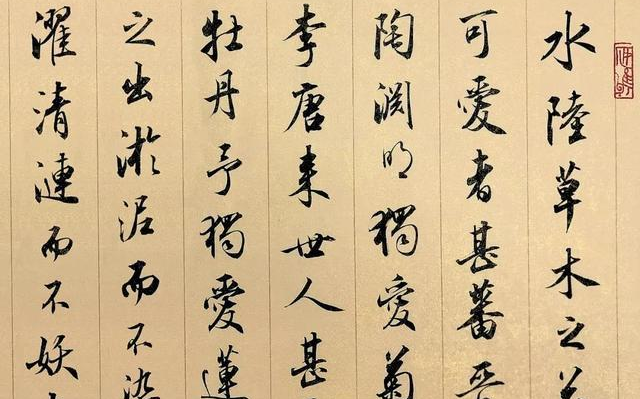 水陸草木之
可愛者甚蕃晉
陶淵明獨愛菊
李唐來世人甚
牡丹予獨愛蓮
之出淤泥而不染
濯清漣而不妖